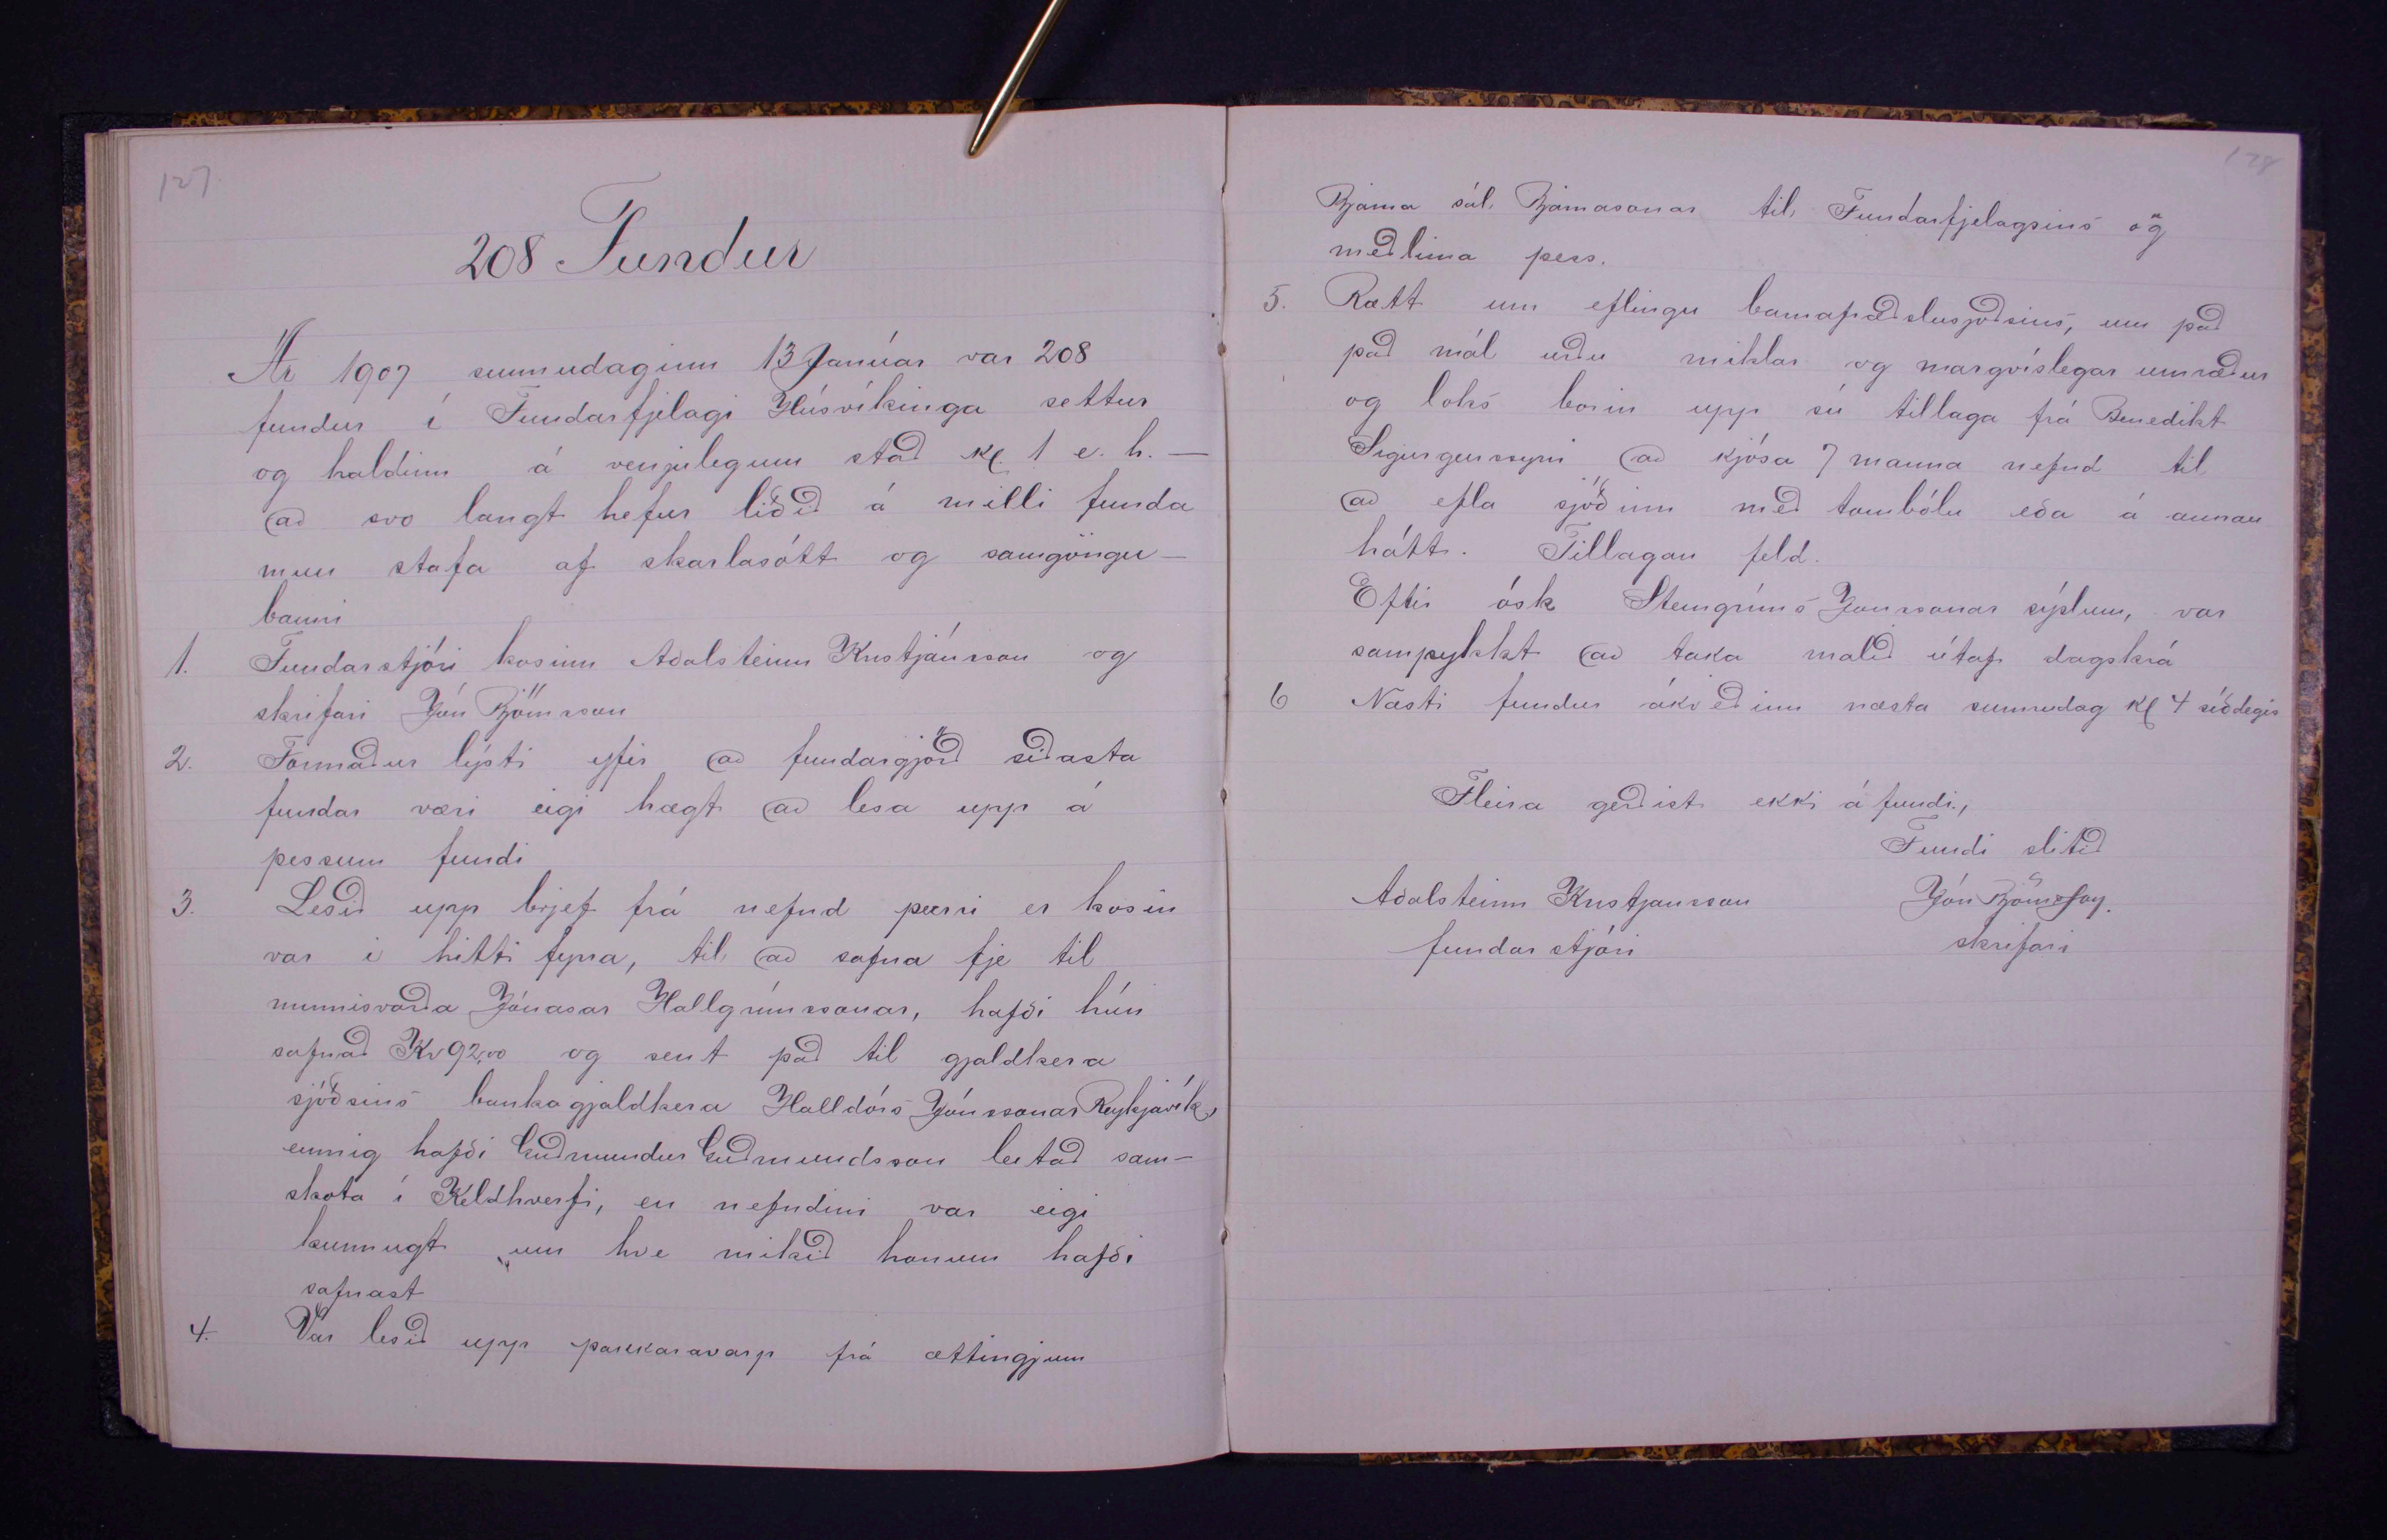 127.
208 Fundur
Ár 1907 sunnudaginn 13 Janúar var 208
fundur í Fundarfjelagi Húsvíkinga settur
og haldinn á venjulegum stað kl. 1 e. h. —
að svo langt hefur liðið á milli funda
mun stafa af skarlasótt og samgöngu-
banni
1. Fundarstjóri kosinn Aðalsteinn Kristjánsson og
skrifari Jón Björnsson
2. Formaður lýsti yfir að fundargjörð siðasta
fundar væri eigi hægt að lesa upp á
þessum fundi
3. Lesið upp brjef frá nefnd þeirri er kosin
var i hitti fyrra, til að safna fje til
minnisvarða Jónasar Hallgrímssonar, hafði hún
safnað Kr 92,00 og sent það til gjaldkera
sjóðsins bankagjaldkera Halldórs Jónssonar Reykjavík,
einnig hafði Guðmundur Guðmundsson leitað sam-
skota í Keldhverfi, en nefndini var eigi
kunnugt um hve mikið honum hafði
safnast
4. Var lesið upp þakkaravarp frá ættingjum
128
Bjarna sál. Bjarnasonar til Fundarfjelagsins og
meðlima þess.
5. Rætt um eflingu barnafræðslusjóðsins, um það
það mál urðu miklar og margvíslegar umræður
og loks borin upp sú tillaga frá Benedikt
Sigurgeirssyni að kjósa 7 manna nefnd til
að efla sjóðinn með tombólu eða á annan
hátt. Tillagan feld.
Eftir ósk Steingríms Jonssonar sýslum, var
samþykkt að taka malið útaf dagskrá
6 Næsti fundur ákveðinn næsta sunnudag kl 4 síðdegis
Fleira gerðist ekki á fundi.,
Fundi slitið
Aðalsteinn Kristjansson Jón Björnsson.
fundarstjóri skrifari